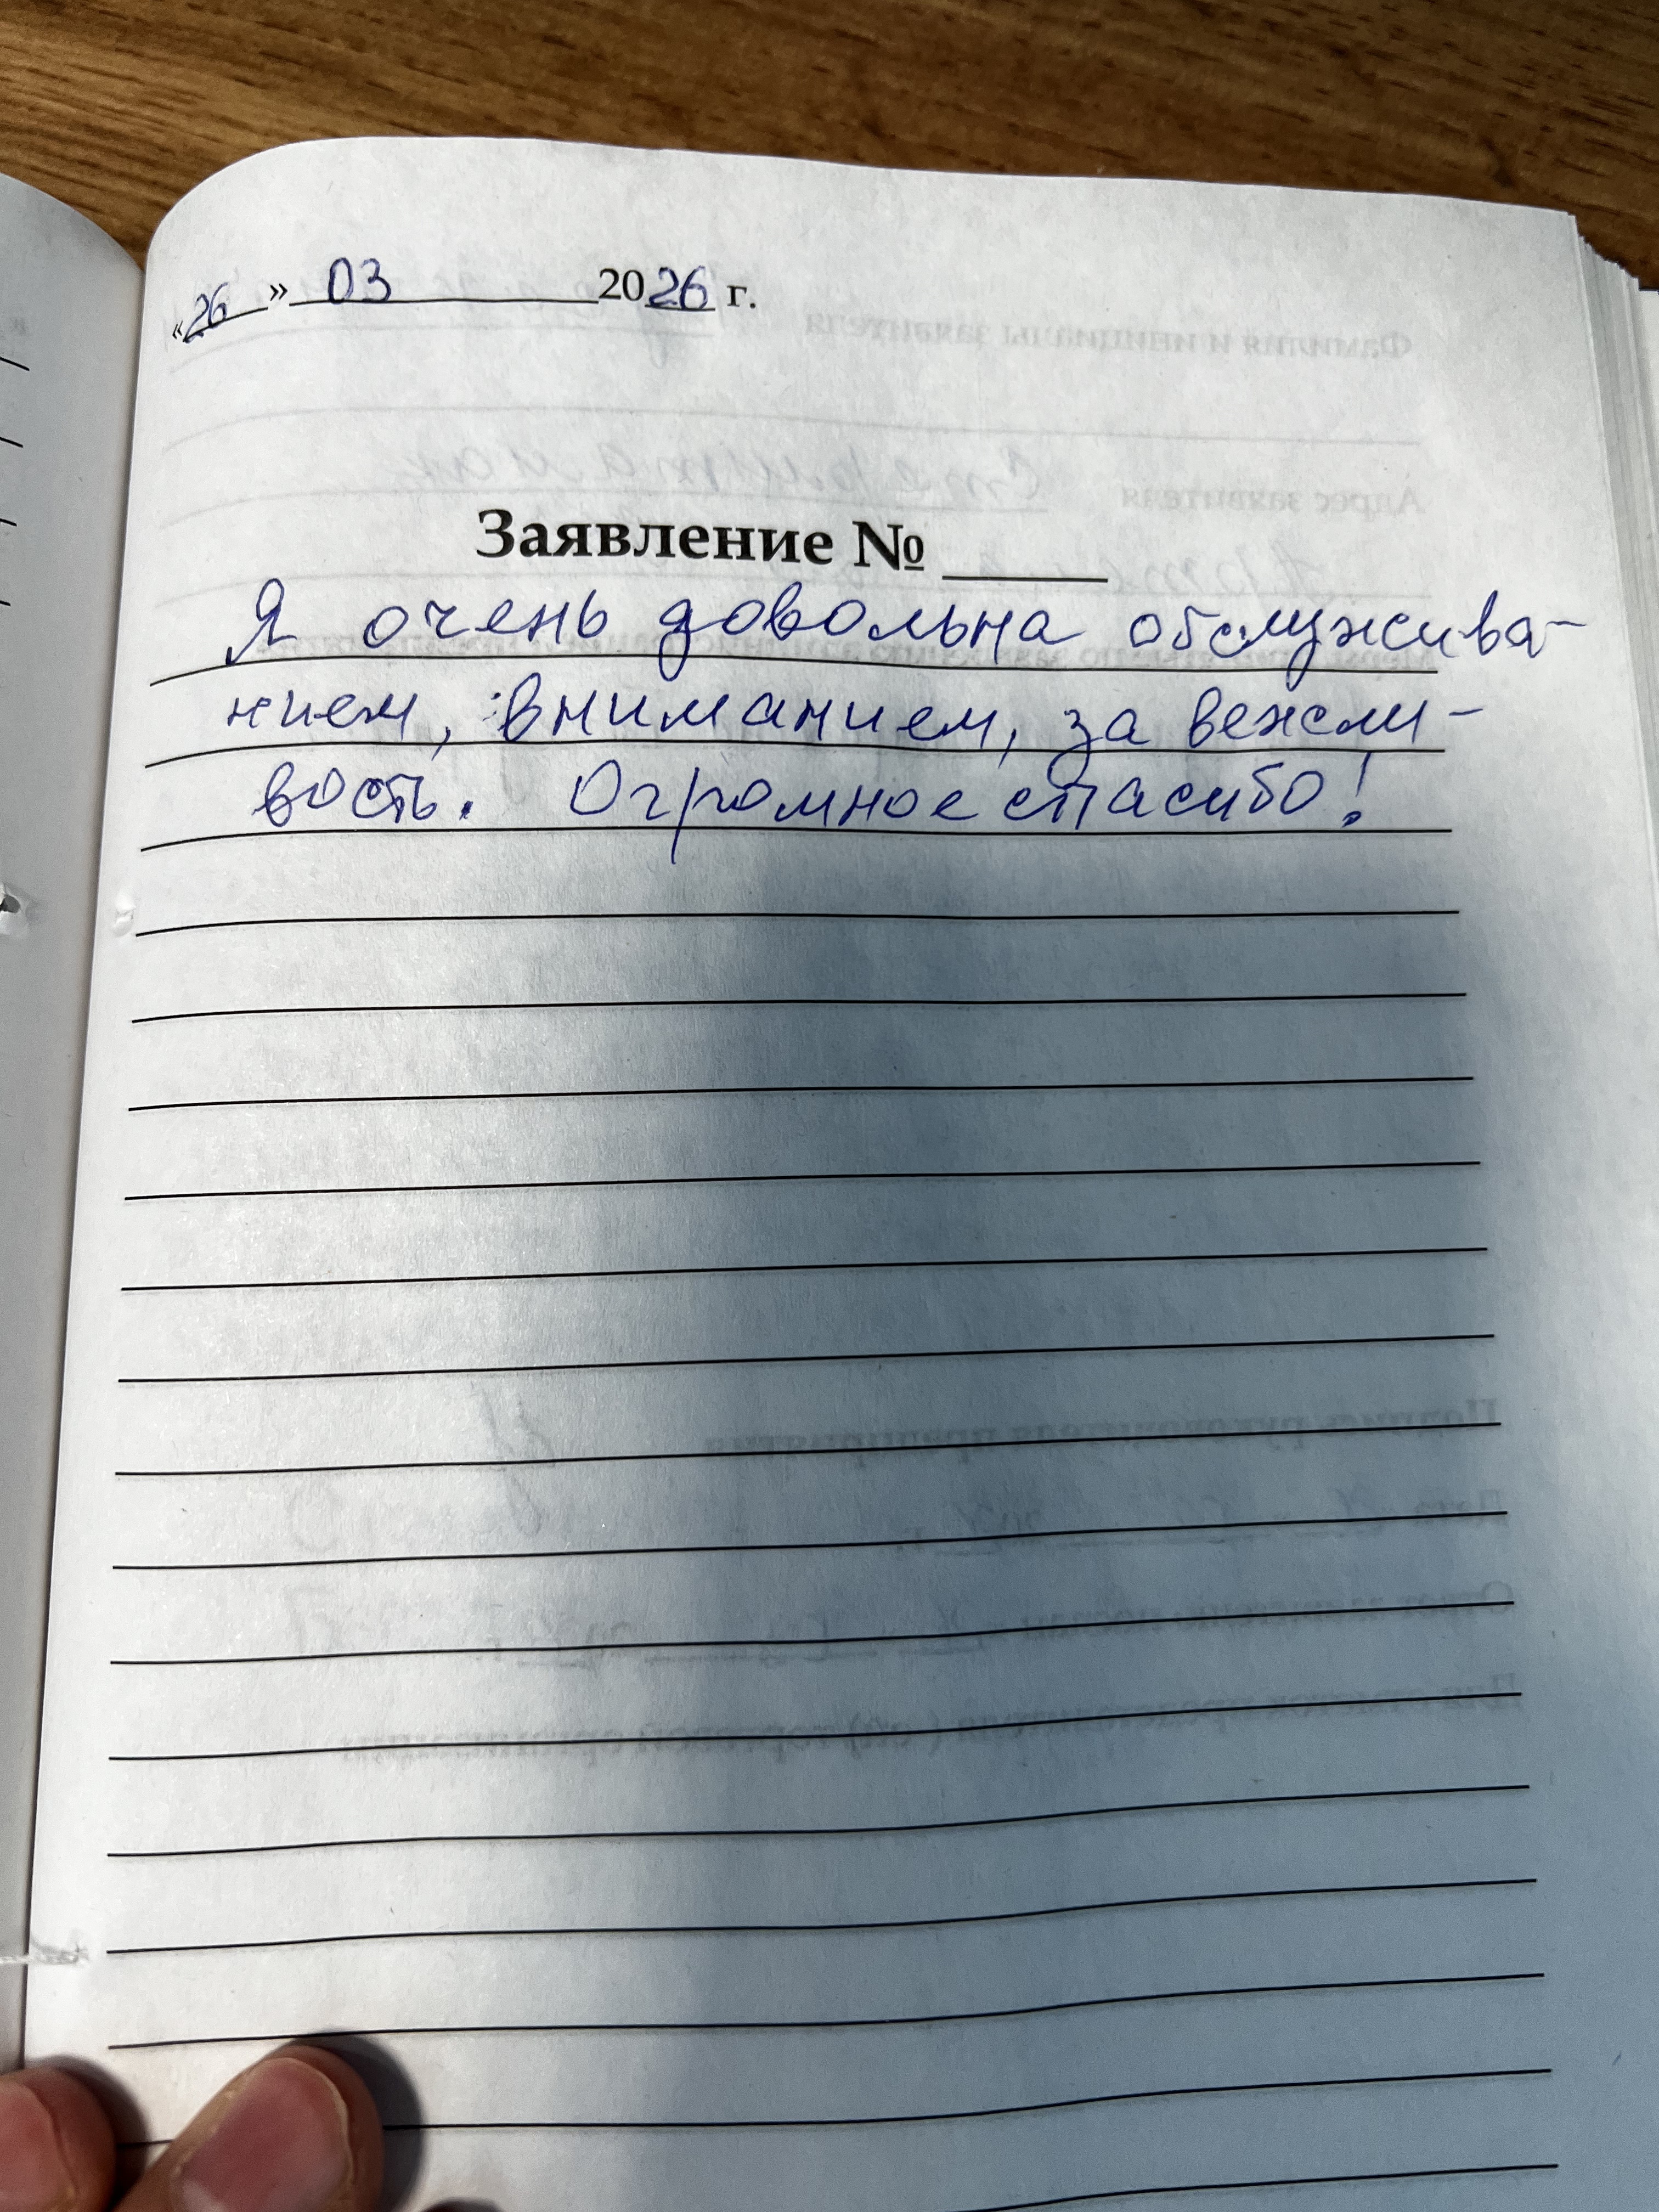 «26» 03 2026 г.
Заявление № ____
Я очень довольна обслужива-
нием, вниманием, за вежли-
вость. Огромное спасибо!